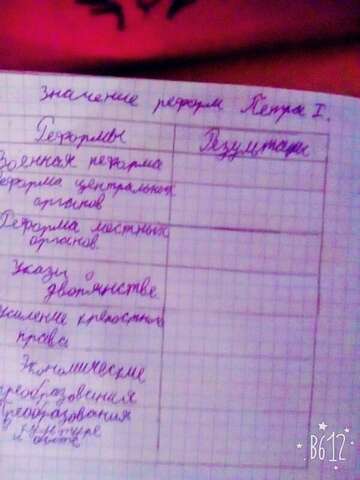 Значение реформ Петра I.
Реформы
Результаты
Военная реформа
еформа центральных
органов
Реформа местных
органов
Указы о
дворянстве
силение крепостного
права
Экономические
преобразования
Преобразования
в культуре
и быте
B612